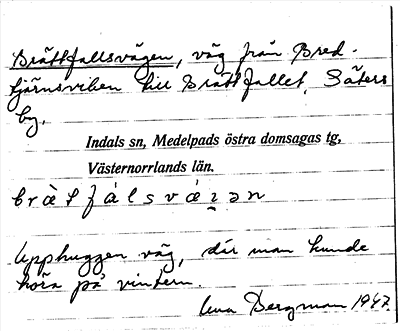 Brättfallsvägen, väg från Bred-
tjärnsviken till Brättfallet, Säters
by.
Indals sn, Medelpads östra domsagas tg,
Västernorrlands län.
bræ̀tfálsvǽgən
Upphuggen väg, där man kunde
köra på vintern.
Una Bergman 1947